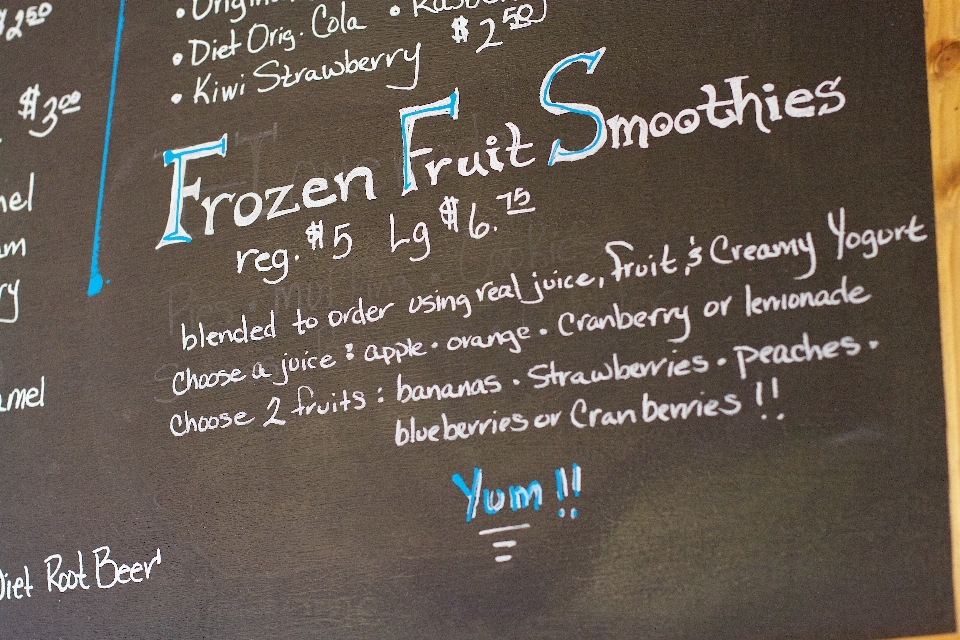 $2.50
$3.00
Diet Orig. Cola
Kiwi Strawberry $2.50
Frozen Fruit Smoothies
reg. $5 Lg $6.75
blended to order using real juice, fruit & Creamy Yogurt
choose a juice : apple • orange • Cranberry or lemonade
choose 2 fruits : bananas • Strawberries • peaches •
blueberries or Cranberries !!
Yum !!
Diet Root Beer